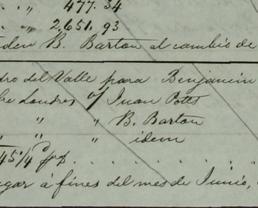 " " 477.34
" " 2,651.93
B. Barton al cambio de
del Valle para Benjamin
Londres o/ Juan Potts
" " " B. Barton
" " " idem
45 1/4
á fines del mes de Junio,